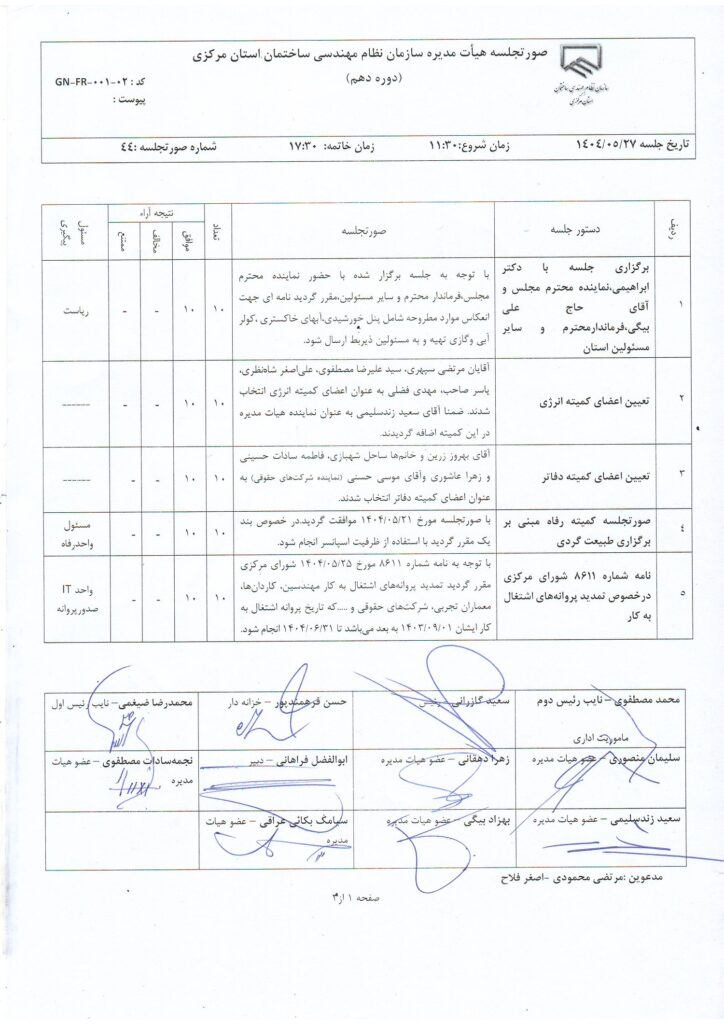 صورتجلسه هیأت مدیره سازمان نظام مهندسی ساختمان استان مرکزی
(دوره دهم)
سازمان نظام مهندسی ساختمان
استان مرکزی
کد : GN-FR-۰۰۱-۰۲
پیوست :
تاریخ جلسه ۱۴۰۴/۰۵/۲۷ زمان شروع:۱۱:۳۰ زمان خاتمه: ۱۷:۳۰ شماره صورتجلسه :۴۴
ردیف
دستور جلسه
صورتجلسه
تعداد
نتیجه آراء
موافق
مخالف
ممتنع
مسئول پیگیری
۱
برگزاری جلسه با دکتر
ابراهیمی،نماینده محترم مجلس و
آقای حاج علی
بیگی،فرماندارمحترم و سایر
مسئولین استان
با توجه به جلسه برگزار شده با حضور نماینده محترم
مجلس،فرماندار محترم و سایر مسئولین،مقرر گردید نامه ای جهت
انعکاس موارد مطروحه شامل پنل خورشیدی،آبهای خاکستری ،کولر
آبی وگازی تهیه و به مسئولین ذیربط ارسال شود.
۱۰
۱۰
-
-
ریاست
۲
تعیین اعضای کمیته انرژی
آقایان مرتضی سپهری، سید علیرضا مصطفوی، علی‌اصغر شاه‌نظری،
یاسر صاحب، مهدی فضلی به عنوان اعضای کمیته انرژی انتخاب
شدند. ضمنا آقای سعید زندسلیمی به عنوان نماینده هیات مدیره
در این کمیته اضافه گردیدند.
۱۰
۱۰
-
-
------
۳
تعیین اعضای کمیته دفاتر
آقای بهروز زرین و خانم‌ها ساحل شهبازی، فاطمه سادات حسینی
و زهرا عاشوری وآقای موسی حسنی (نماینده شرکت‌های حقوقی) به
عنوان اعضای کمیته دفاتر انتخاب شدند.
۱۰
۱۰
-
-
------
۴
صورتجلسه کمیته رفاه مبنی بر
برگزاری طبیعت گردی
با صورتجلسه مورخ ۱۴۰۴/۰۵/۲۱ موافقت گردید.در خصوص بند
یک مقرر گردید با استفاده از ظرفیت اسپانسر انجام شود.
۱۰
۱۰
-
-
مسئول
واحدرفاه
۵
نامه شماره ۸۶۱۱ شورای مرکزی
درخصوص تمدید پروانه‌های اشتغال
به کار
با توجه به نامه شماره ۸۶۱۱ مورخ ۱۴۰۴/۰۵/۲۵ شورای مرکزی
مقرر گردید تمدید پروانه‌های اشتغال به کار مهندسین، کاردان‌ها،
معماران تجربی، شرکت‌های حقوقی و .....که تاریخ پروانه اشتغال به
کار ایشان ۱۴۰۳/۰۹/۰۱ به بعد می‌باشد تا ۱۴۰۴/۰۶/۳۱ انجام شود.
۱۰
۱۰
-
-
واحد IT
صدورپروانه
محمد مصطفوی – نایب رئیس دوم
ماموریت اداری
سعید گازرانی – رئیس
حسن فرهمندپور – خزانه دار
محمدرضا ضیغمی– نایب رئیس اول
سلیمان منصوری – عضو هیات مدیره
زهرا دهقانی – عضو هیات مدیره
ابوالفضل فراهانی – دبیر
نجمه‌سادات مصطفوی – عضو هیات
مدیره
سعید زندسلیمی – عضو هیات مدیره
بهزاد بیگی – عضو هیات مدیره
سیامک بکائی عراقی – عضو هیات
مدیره
مدعوین :مرتضی محمودی –اصغر فلاح
صفحه ۱ از۳